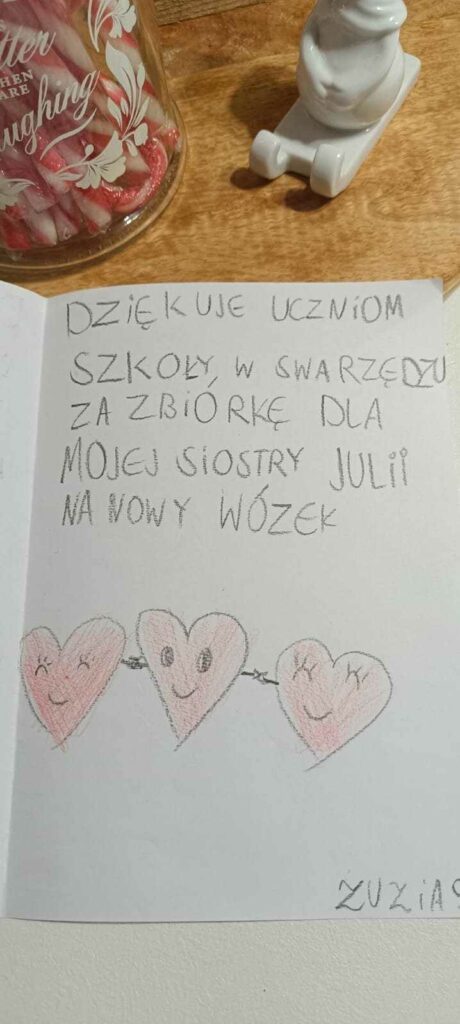 utter
WHEN
ARE
laughing
DZIĘKUJE UCZNIOM
SZKOŁY W SWARZĘDZU
ZA ZBIÓRKĘ DLA
MOJEJ SIOSTRY JULII
NA NOWY WÓZEK
ZUZIA